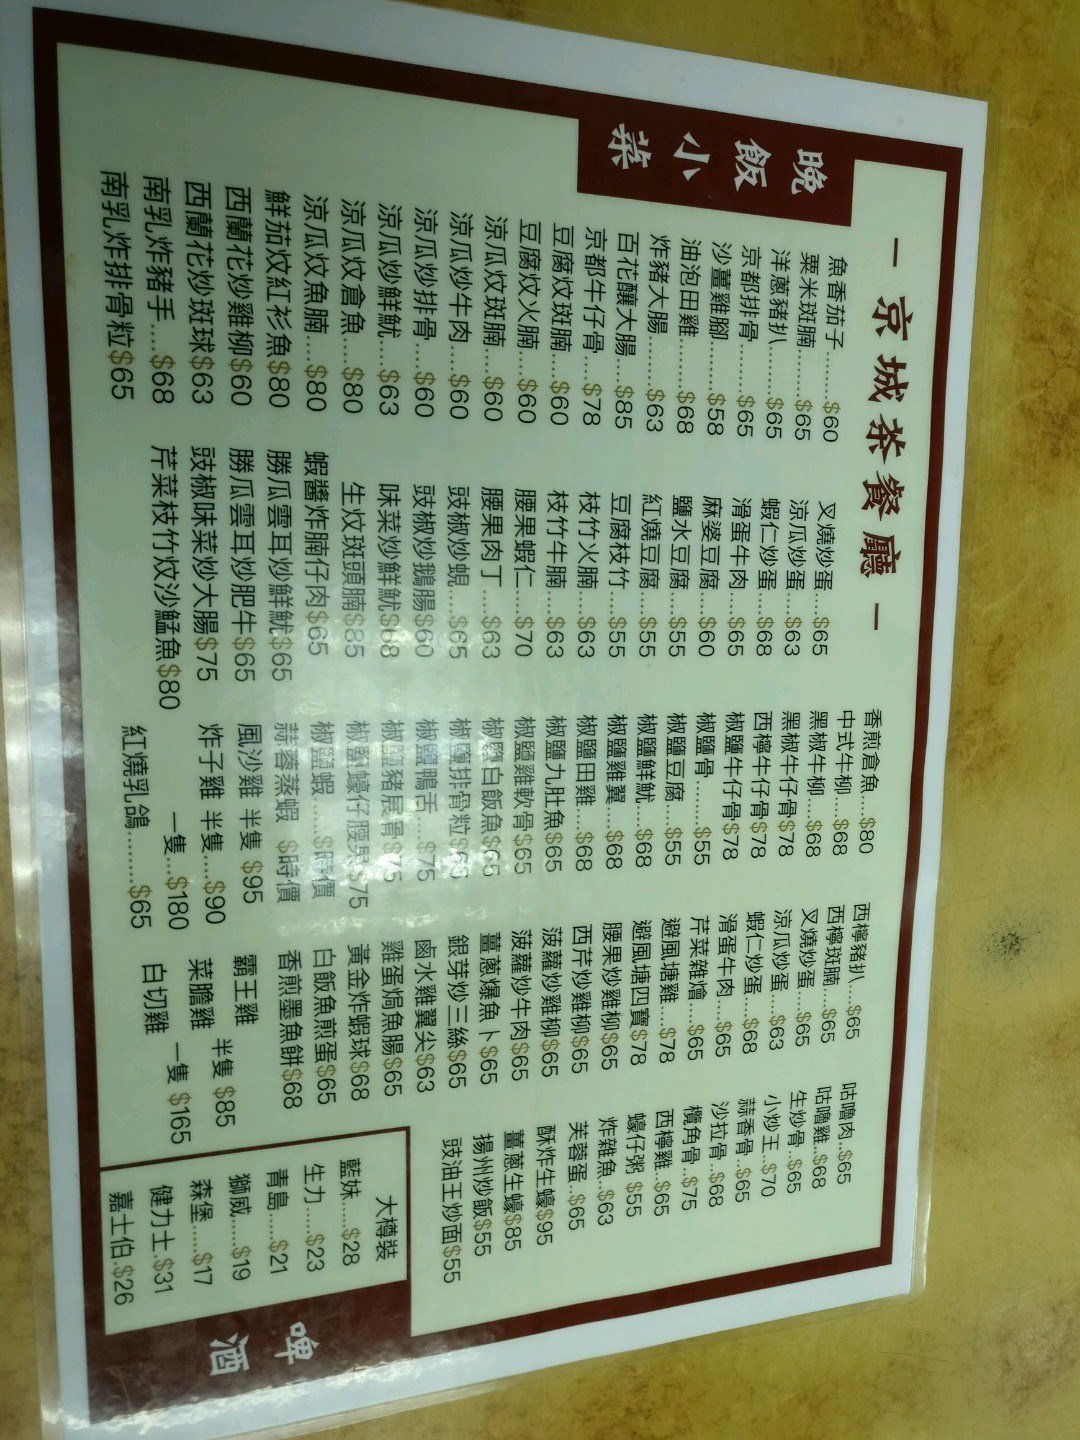 晚飯小菜
— 京城茶餐廳 —
魚香茄子..........$60
粟米斑腩........$65
洋蔥豬扒........$65
京都排骨........$65
沙薑雞腳........$58
油泡田雞........$68
炸豬大腸........$63
百花釀大腸....$85
京都牛仔骨....$78
豆腐炆斑腩....$60
豆腐炆火腩....$60
涼瓜炆斑腩....$60
涼瓜炒牛肉....$60
涼瓜炒排骨....$60
涼瓜炒鮮魷....$63
涼瓜炆倉魚....$80
涼瓜炆魚腩....$80
鮮茄炆紅衫魚$80
西蘭花炒雞柳$60
西蘭花炒斑球$63
南乳炸豬手....$68
南乳炸排骨粒$65
叉燒炒蛋...$65
涼瓜炒蛋...$63
蝦仁炒蛋...$68
滑蛋牛肉...$65
麻婆豆腐...$60
鹽水豆腐...$55
紅燒豆腐...$55
豆腐枝竹...$55
枝竹火腩...$63
枝竹牛腩...$63
腰果蝦仁...$70
腰果肉丁...$63
豉椒炒蜆....$65
豉椒炒鵝腸$60
味菜炒鮮魷$68
生炆斑頭腩$85
蝦醬炸腩仔肉$65
勝瓜雲耳炒鮮魷$65
勝瓜雲耳炒肥牛$65
豉椒味菜炒大腸$75
芹菜枝竹炆沙鯭魚$80
香煎倉魚....$80
中式牛柳...$68
黑椒牛柳...$68
黑椒牛仔骨$78
西檸牛仔骨$78
椒鹽牛仔骨$78
椒鹽骨.........$55
椒鹽豆腐....$55
椒鹽鮮魷....$68
椒鹽雞翼....$68
椒鹽田雞....$68
椒鹽九肚魚$65
椒鹽雞軟骨$65
椒鹽白飯魚$65
椒鹽排骨粒$68
椒鹽鴨舌....$75
椒鹽豬展骨$75
椒鹽蠔仔腰果$75
椒鹽蝦....$時價
蒜蓉蒸蝦 $時價
風沙雞 半隻 $95
炸子雞 半隻....$90
一隻...$180
紅燒乳鴿........$65
西檸豬扒...$65
西檸斑腩...$65
叉燒炒蛋...$65
涼瓜炒蛋...$63
蝦仁炒蛋...$68
滑蛋牛肉...$65
芹菜雜燴...$65
避風塘雞...$78
避風塘四寶$78
腰果炒雞柳$65
西芹炒雞柳$65
菠蘿炒雞柳$65
菠蘿炒牛肉$65
薑蔥爆魚卜$65
銀芽炒三絲$65
鹵水雞翼尖$63
雞蛋焗魚腸$65
黃金炸蝦球$68
白飯魚煎蛋$65
香煎墨魚餅$68
霸王雞
菜膽雞 半隻 $85
白切雞 一隻 $165
咕嚕肉..$65
咕嚕雞..$68
生炒骨...$65
小炒王...$70
蒜香骨...$65
沙拉骨...$68
欖角骨...$75
西檸雞...$65
蠔仔粥 $55
炸雜魚...$63
芙蓉蛋...$65
酥炸生蠔$95
薑蔥生蠔$85
揚州炒飯$55
豉油王炒面$55
大樽裝
藍妹.....$28
生力.....$23
青島.....$21
獅威.....$19
森堡.....$17
健力士.$31
嘉士伯.$26
啤酒